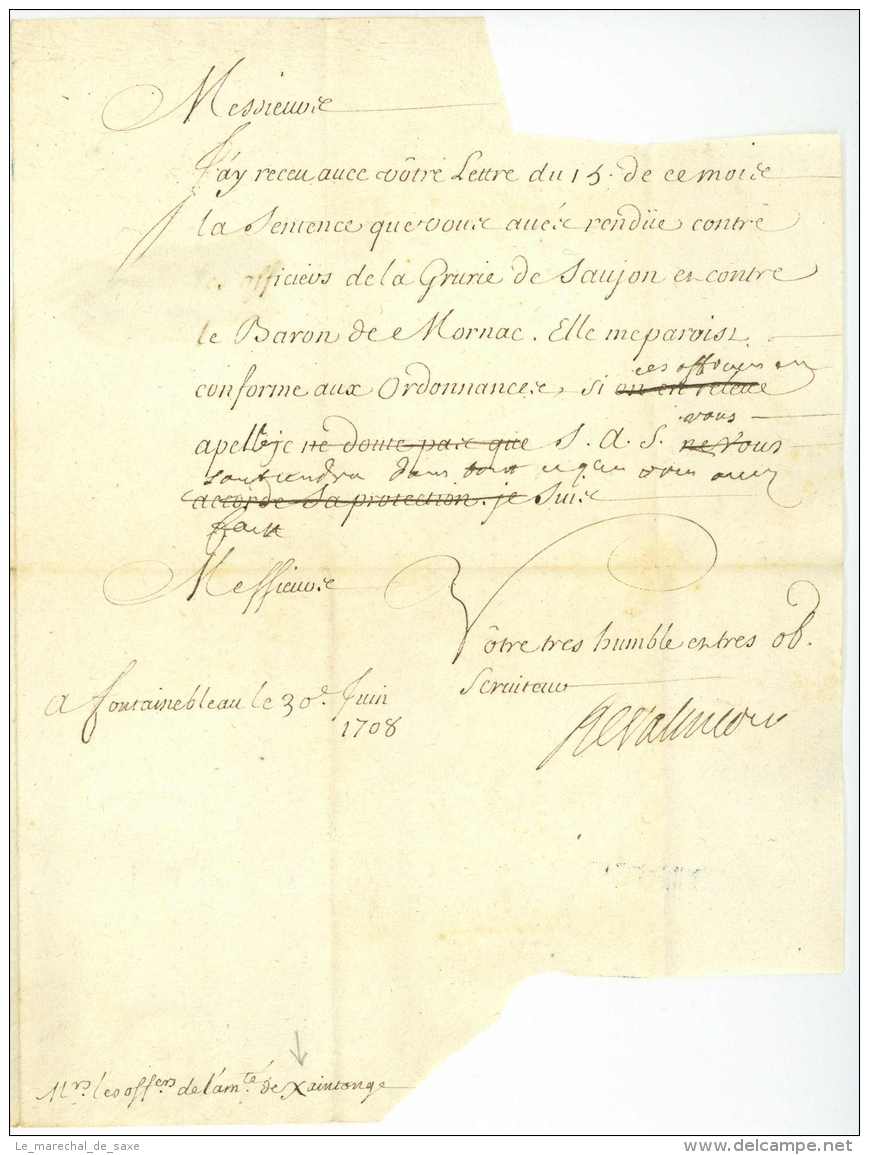 Messieurs
J'ay receu avec vôtre Lettre du 15. de ce mois
la Sentence que vous avés rendüe contre
les officiers de la Grurie de Saujon et contre
le Baron de Mornac. Elle me paroist
ces officiers en
conforme aux Ordonnances, si on en releve
vous
apelle je ne doute pas que S. A. S. ne vous
soutiendra dans tout ce que vous avez
accorde sa protection. je suis
fait
Messieurs
Vôtre tres humble et tres ob.
Serviteur
A fontainebleau le 30e. Juin
1708
De Valincour
Mrs. les offers de l'amté de Xaintonge
Le_marechal_de_saxe
delcampe.net